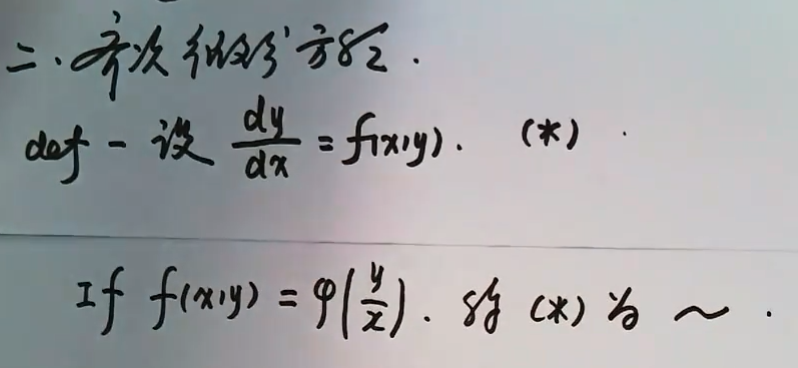 二、齐次微分方程.
def - 设 dy/dx = f(x,y). (*)
If f(x,y) = φ(y/x). 称 (*) 为 ~.